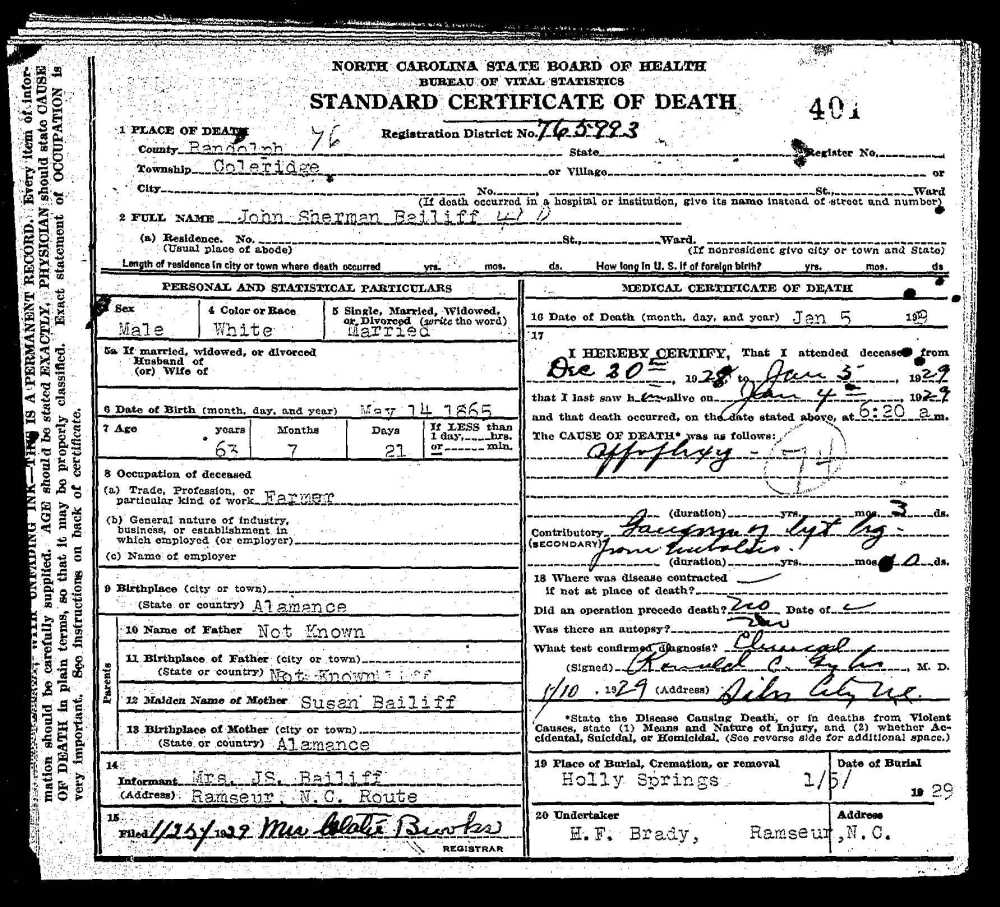 NORTH CAROLINA STATE BOARD OF HEALTH
BUREAU OF VITAL STATISTICS
STANDARD CERTIFICATE OF DEATH
401
1 PLACE OF DEATH 76 Registration District No. 765993
County Randolph State Register No.
Township Coleridge or Village or
City No. St., Ward
(If death occurred in a hospital or institution, give its name instead of street and number)
2 FULL NAME John Sherman Bailiff
(a) Residence. No. St., Ward.
(Usual place of abode) (If nonresident give city or town and State)
Length of residence in city or town where death occurred yrs. mos. ds. How long in U. S. if of foreign birth? yrs. mos. ds
PERSONAL AND STATISTICAL PARTICULARS
3 Sex 4 Color or Race 5 Single, Married, Widowed, or Divorced (write the word)
Male White Married
5a If married, widowed, or divorced
Husband of
(or) Wife of
6 Date of Birth (month, day, and year) May 14 1865
7 Age years Months Days If LESS than 1 day, hrs. or min.
63 7 21
8 Occupation of deceased
(a) Trade, Profession, or
particular kind of work Farmer
(b) General nature of industry,
business, or establishment in
which employed (or employer)
(c) Name of employer
9 Birthplace (city or town)
(State or country) Alamance
Parents
10 Name of Father Not Known
11 Birthplace of Father (city or town)
(State or country) Not Known
12 Maiden Name of Mother Susan Bailiff
13 Birthplace of Mother (city or town)
(State or country) Alamance
14
Informant Mrs. JS. Bailiff
(Address) Ramseur, N.C. Route
15
Filed 1/25/ 1929 Mrs Burks
REGISTRAR
MEDICAL CERTIFICATE OF DEATH
16 Date of Death (month, day, and year) Jan 5 1929
17
I HEREBY CERTIFY, That I attended deceased from
Dec 20th, 1928, to Jan 5, 1929
that I last saw him alive on Jan 4th 1929
and that death occurred, on the date stated above, at 6:20 a.m.
The CAUSE OF DEATH* was as follows:
Apoplexy - 74
(duration) yrs. mos. 3 ds.
Contributory Gangrene of left leg -
(SECONDARY) from embolus.
(duration) yrs. mos. 10 ds.
18 Where was disease contracted
if not at place of death?
Did an operation precede death? no Date of
Was there an autopsy? no
What test confirmed diagnosis? Clinical
(Signed) C. M. D.
1/10, 1929 (Address) Siler City N.C.
*State the Disease Causing Death, or in deaths from Violent
Causes, state (1) Means and Nature of Injury, and (2) whether Ac-
cidental, Suicidal, or Homicidal. (See reverse side for additional space.)
19 Place of Burial, Cremation, or removal Date of Burial
Holly Springs 1/5/ 1929
20 Undertaker Address
H.F. Brady, Ramseur, N.C.
UNFADING INK—THIS IS A PERMANENT RECORD. Every item of infor-
mation should be carefully supplied. AGE should be stated EXACTLY. PHYSICIAN should state CAUSE
OF DEATH in plain terms, so that it may be properly classified. Exact statement of OCCUPATION is
very important. See instructions on back of certificate.